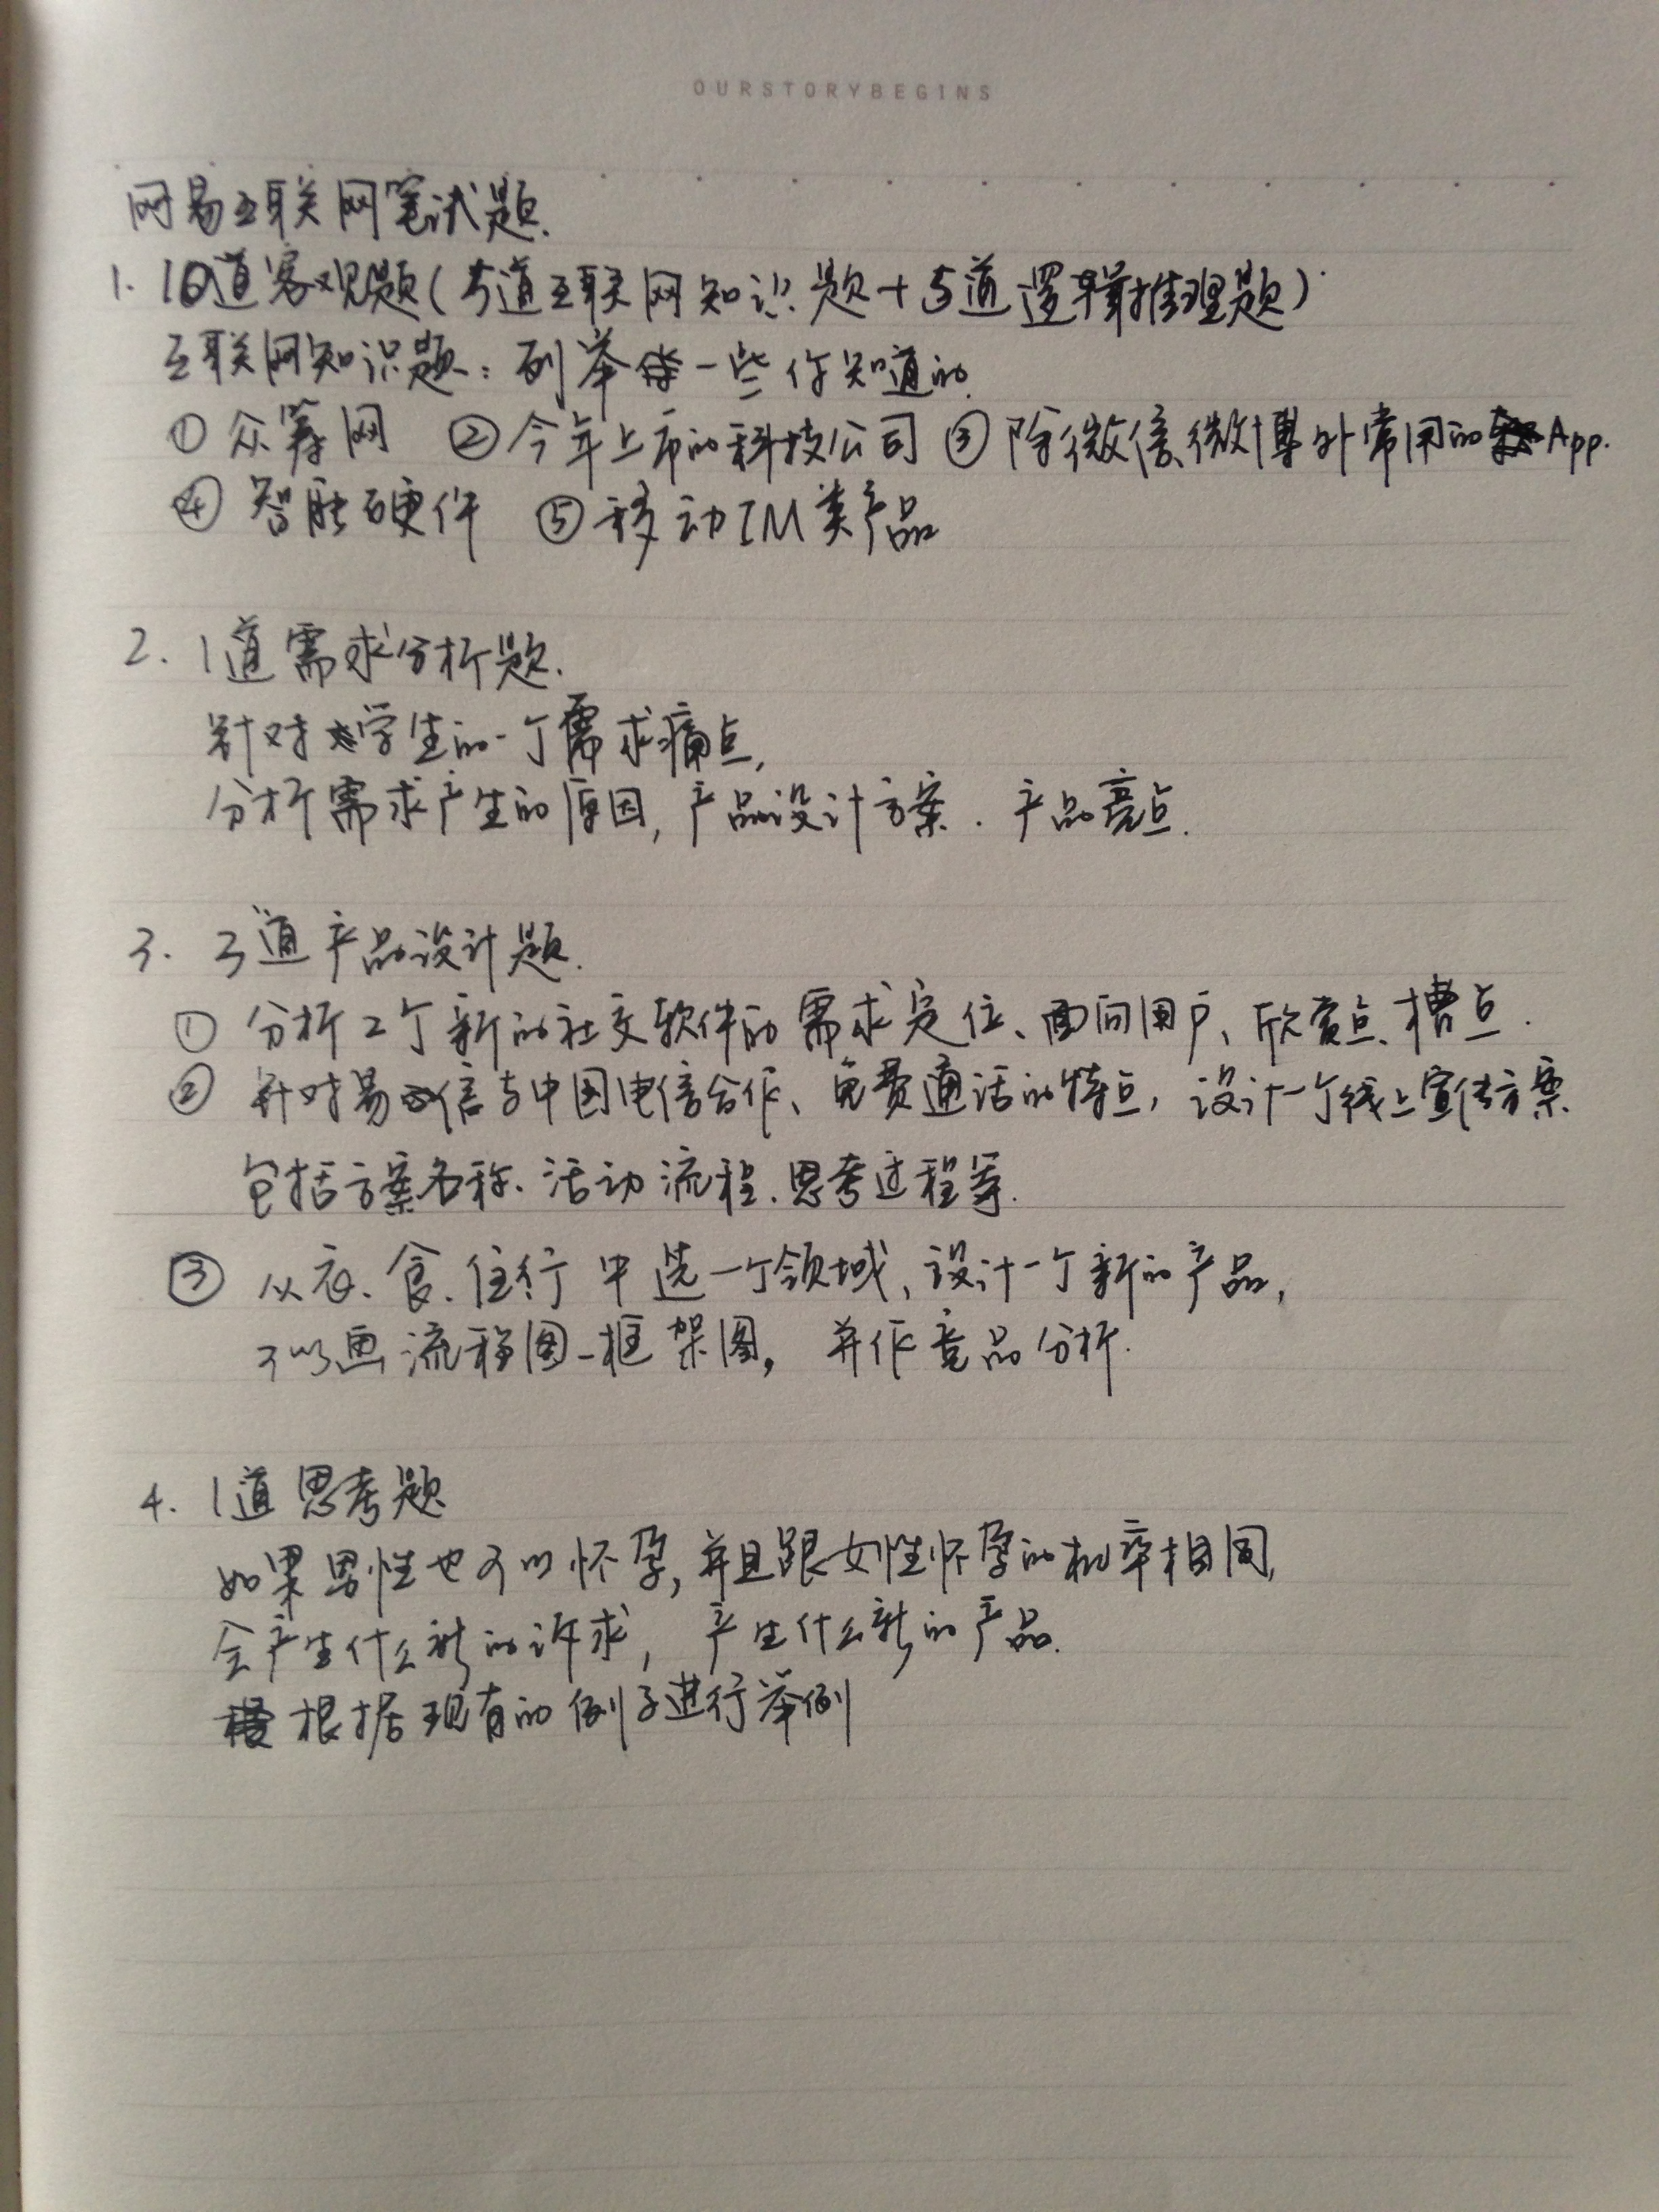 OURSTORYBEGINS
网易互联网笔试题.
1. 10道客观题(5道互联网知识题+5道逻辑推理题)
互联网知识题: 列举一些你知道的
① 众筹网 ② 今年上市的科技公司 ③ 除微信微博外常用的App.
④ 智能硬件 ⑤ 移动IM类产品
2. 1道需求分析题.
针对大学生的一个需求痛点,
分析需求产生的原因, 产品设计方案. 产品亮点.
3. 3道产品设计题.
① 分析2个新的社交软件的需求定位、面向用户、欣赏点、槽点.
② 针对易信与中国电信合作、免费通话的特点, 设计一个线上宣传方案
包括方案名称、活动流程、思考过程等.
③ 从衣、食、住行中选一个领域, 设计一个新的产品,
可以画流程图-框架图, 并作竞品分析.
4. 1道思考题
如果男性也可以怀孕, 并且跟女性怀孕的机率相同,
会产生什么新的诉求, 产生什么新的产品.
根据现有的例子进行举例